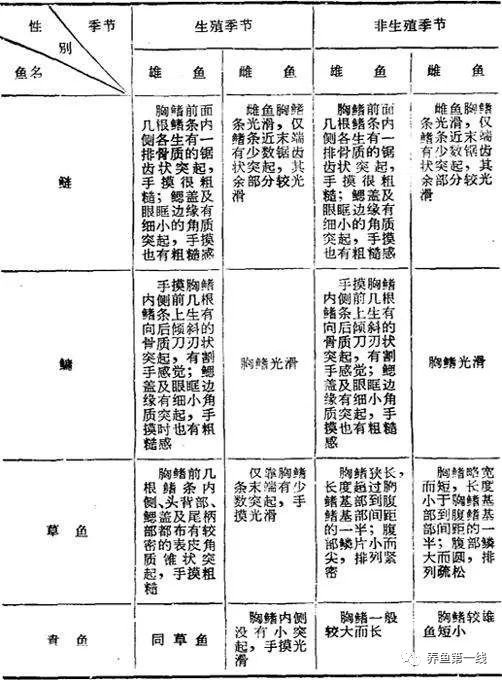 性别 季节
鱼名
生殖季节
非生殖季节
雄鱼
雌鱼
雄鱼
雌鱼
鲢
胸鳍前面
几根鳍条内
侧各生有一
排骨质的锯
齿状突起,
手摸很粗
糙；鳃盖及
眼眶边缘有
细小的角质
突起，手摸
也有粗糙感
雌鱼胸鳍
条光滑，仅
鳍条近末端
有少数锯齿
状突起，其
余部分较光
滑
胸鳍前面
几根鳍条内
侧各生有一
排骨质的锯
齿状突起,
手摸很粗
糙；鳃盖及
眼眶边缘有
细小的角质
突起，手摸
也有粗糙感
雌鱼胸鳍
条光滑，仅
鳍条近末端
有少数锯齿
状突起，其
余部分较光
滑
鳙
手摸胸鳍
内侧前几根
鳍条上生有
向后倾斜的
骨质刀刃状
突起，有割
手感觉；鳃
盖及眼眶边
缘有细小角
质突起，手
摸时也有粗
糙感
胸鳍光滑
手摸胸鳍
内侧前几根
鳍条上生有
向后倾斜的
骨质刀刃状
突起，有割
手感觉；鳃
盖及眼眶边
缘有细小角
质突起，手
摸也有粗
糙感
胸鳍光滑
草鱼
胸鳍前几
根鳍条内
侧、头背部、
鳃盖及尾柄
部都布有较
密的表皮角
质锥状突
起，手摸粗
糙
仅靠胸鳍
条末端有少
数突起，手
摸光滑
胸鳍狭长，
长度超过胸
鳍基部到腹
鳍基部间距
的一半；腹
部鳞片小而
尖，排列紧
密
胸鳍略宽
而短，长度
小于胸鳍基
部到腹鳍基
部间距的一
半；腹部鳞
大而圆，排
列疏松
青鱼
同草鱼
胸鳍内侧
没有小突
起，手摸光
滑
胸鳍一般
较大而长
胸鳍较雄
鱼短小
养鱼第一线